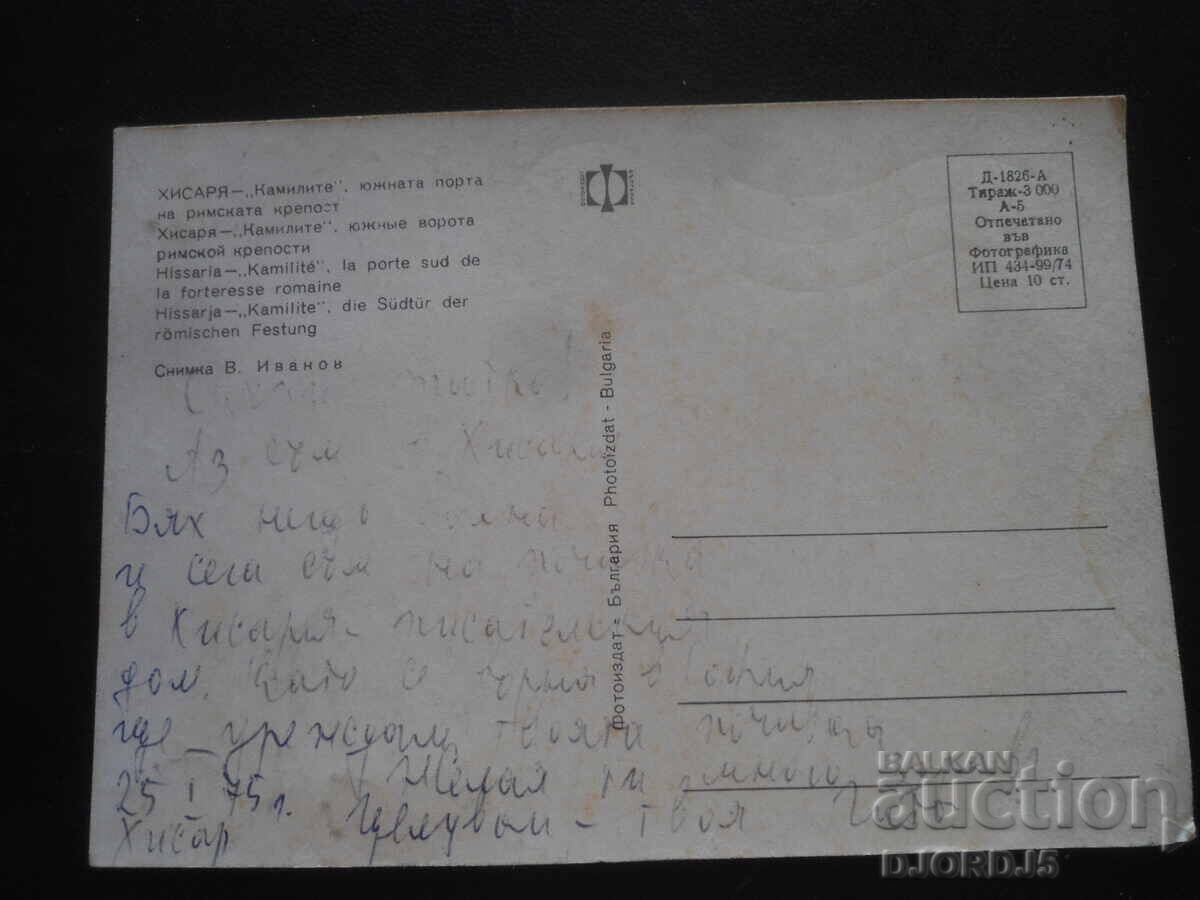 ХИСАРЯ—„Камилите", южната порта
на римската крепост
Хисаря—„Камилите", южные ворота
римской крепости
Hissaria—„Kamilité", la porte sud de
la forteresse romaine
Hissarja—„Kamilite", die Südtür der
römischen Festung
Снимка В. Иванов
Д-1826-А
Тираж-3 000
А-5
Отпечатано
във
Фотографика
ИП 434-99/74
Цена 10 ст.
Фотоиздат - България Photoizdat - Bulgaria
Аз съм Хисаря
Бях нещо болна
и сега съм на почивка
в Хисаря - писателския
дом. Като се върна в София
ще уреждам твоята почивка
25 I 75 г. Желая ти много
Хисар Целувам - твоя
BALKAN
auction
DJORDJ5